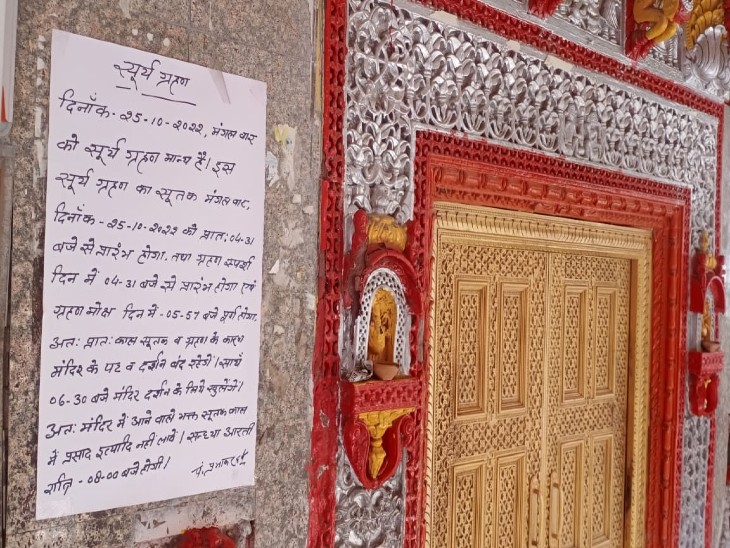 सूर्य ग्रहण
दिनाँक - २5-10-२०२२, मंगल वार
को सूर्य ग्रहण मान्य है। इस
सूर्य ग्रहण का सूतक मंगल वार,
दिनाँक - २5-10-२०२२ को प्रात: 04-31
बजे से प्रारंभ होगा. तथा ग्रहण स्पर्श
दिन में 04-31 बजे से प्रारंभ होगा एवं
ग्रहण मोक्ष दिन में - 05-57 बजे पूर्ण होगा.
अत: प्रात: काल सूतक व ग्रहण के कारण
मंदिर के पट व दर्शन बंद रहेंगे। सायं
06-30 बजे मंदिर दर्शन के लिये खुलेंगे।
अत: मंदिर में आने वाले भक्त सूतक काल
में प्रसाद इत्यादि नहीं लावें। सन्ध्या आरती
रात्रि - 08-00 बजे होगी।
पं.